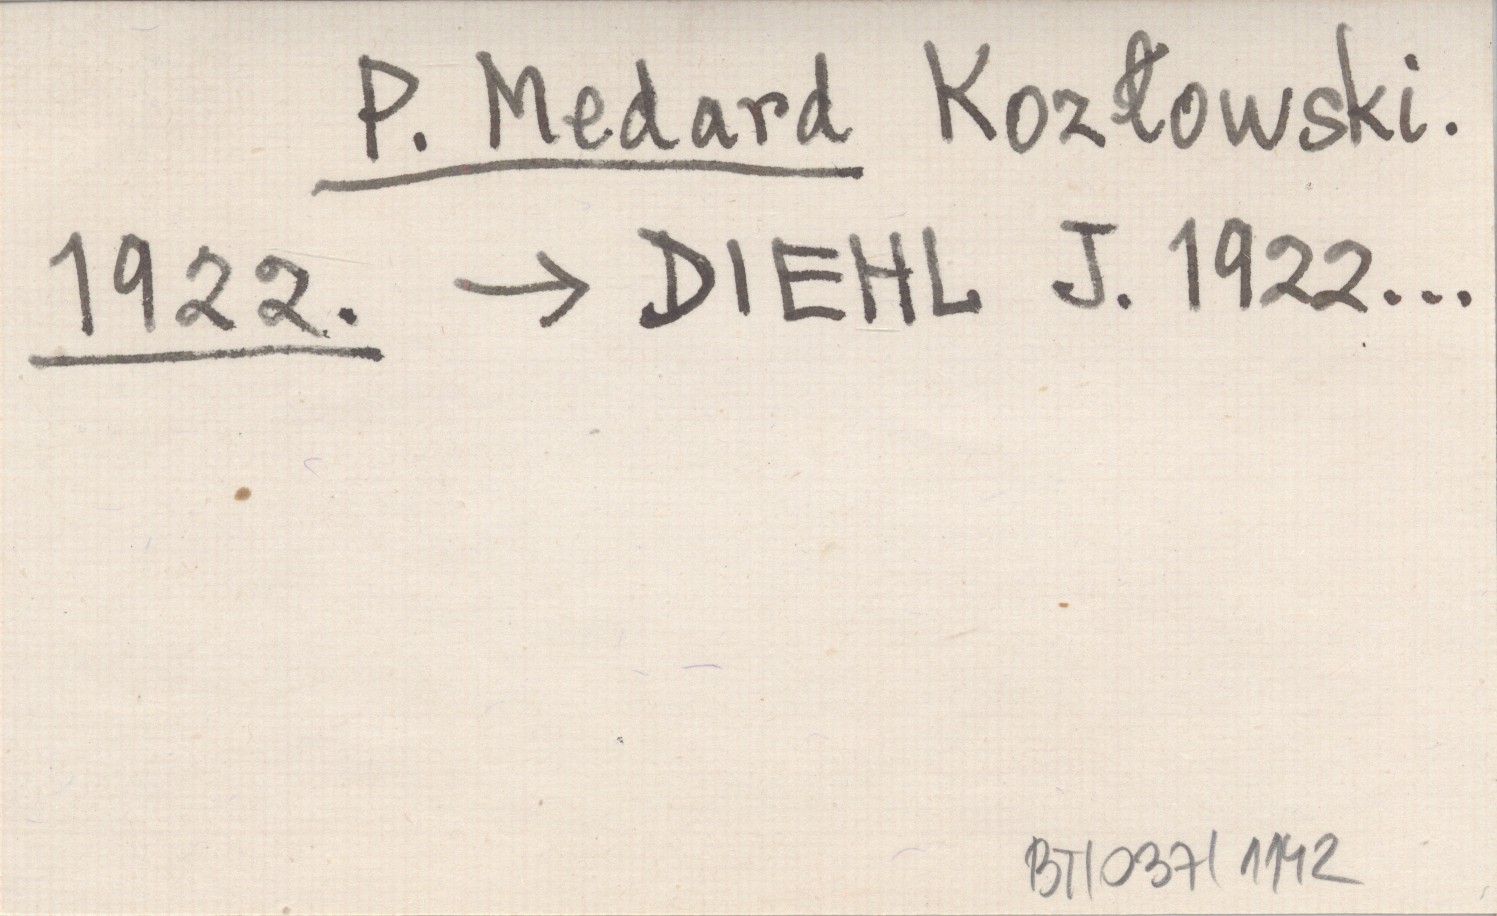 P. Medard Kozłowski.
1922. → DIEHL J. 1922...
BT/037/1142